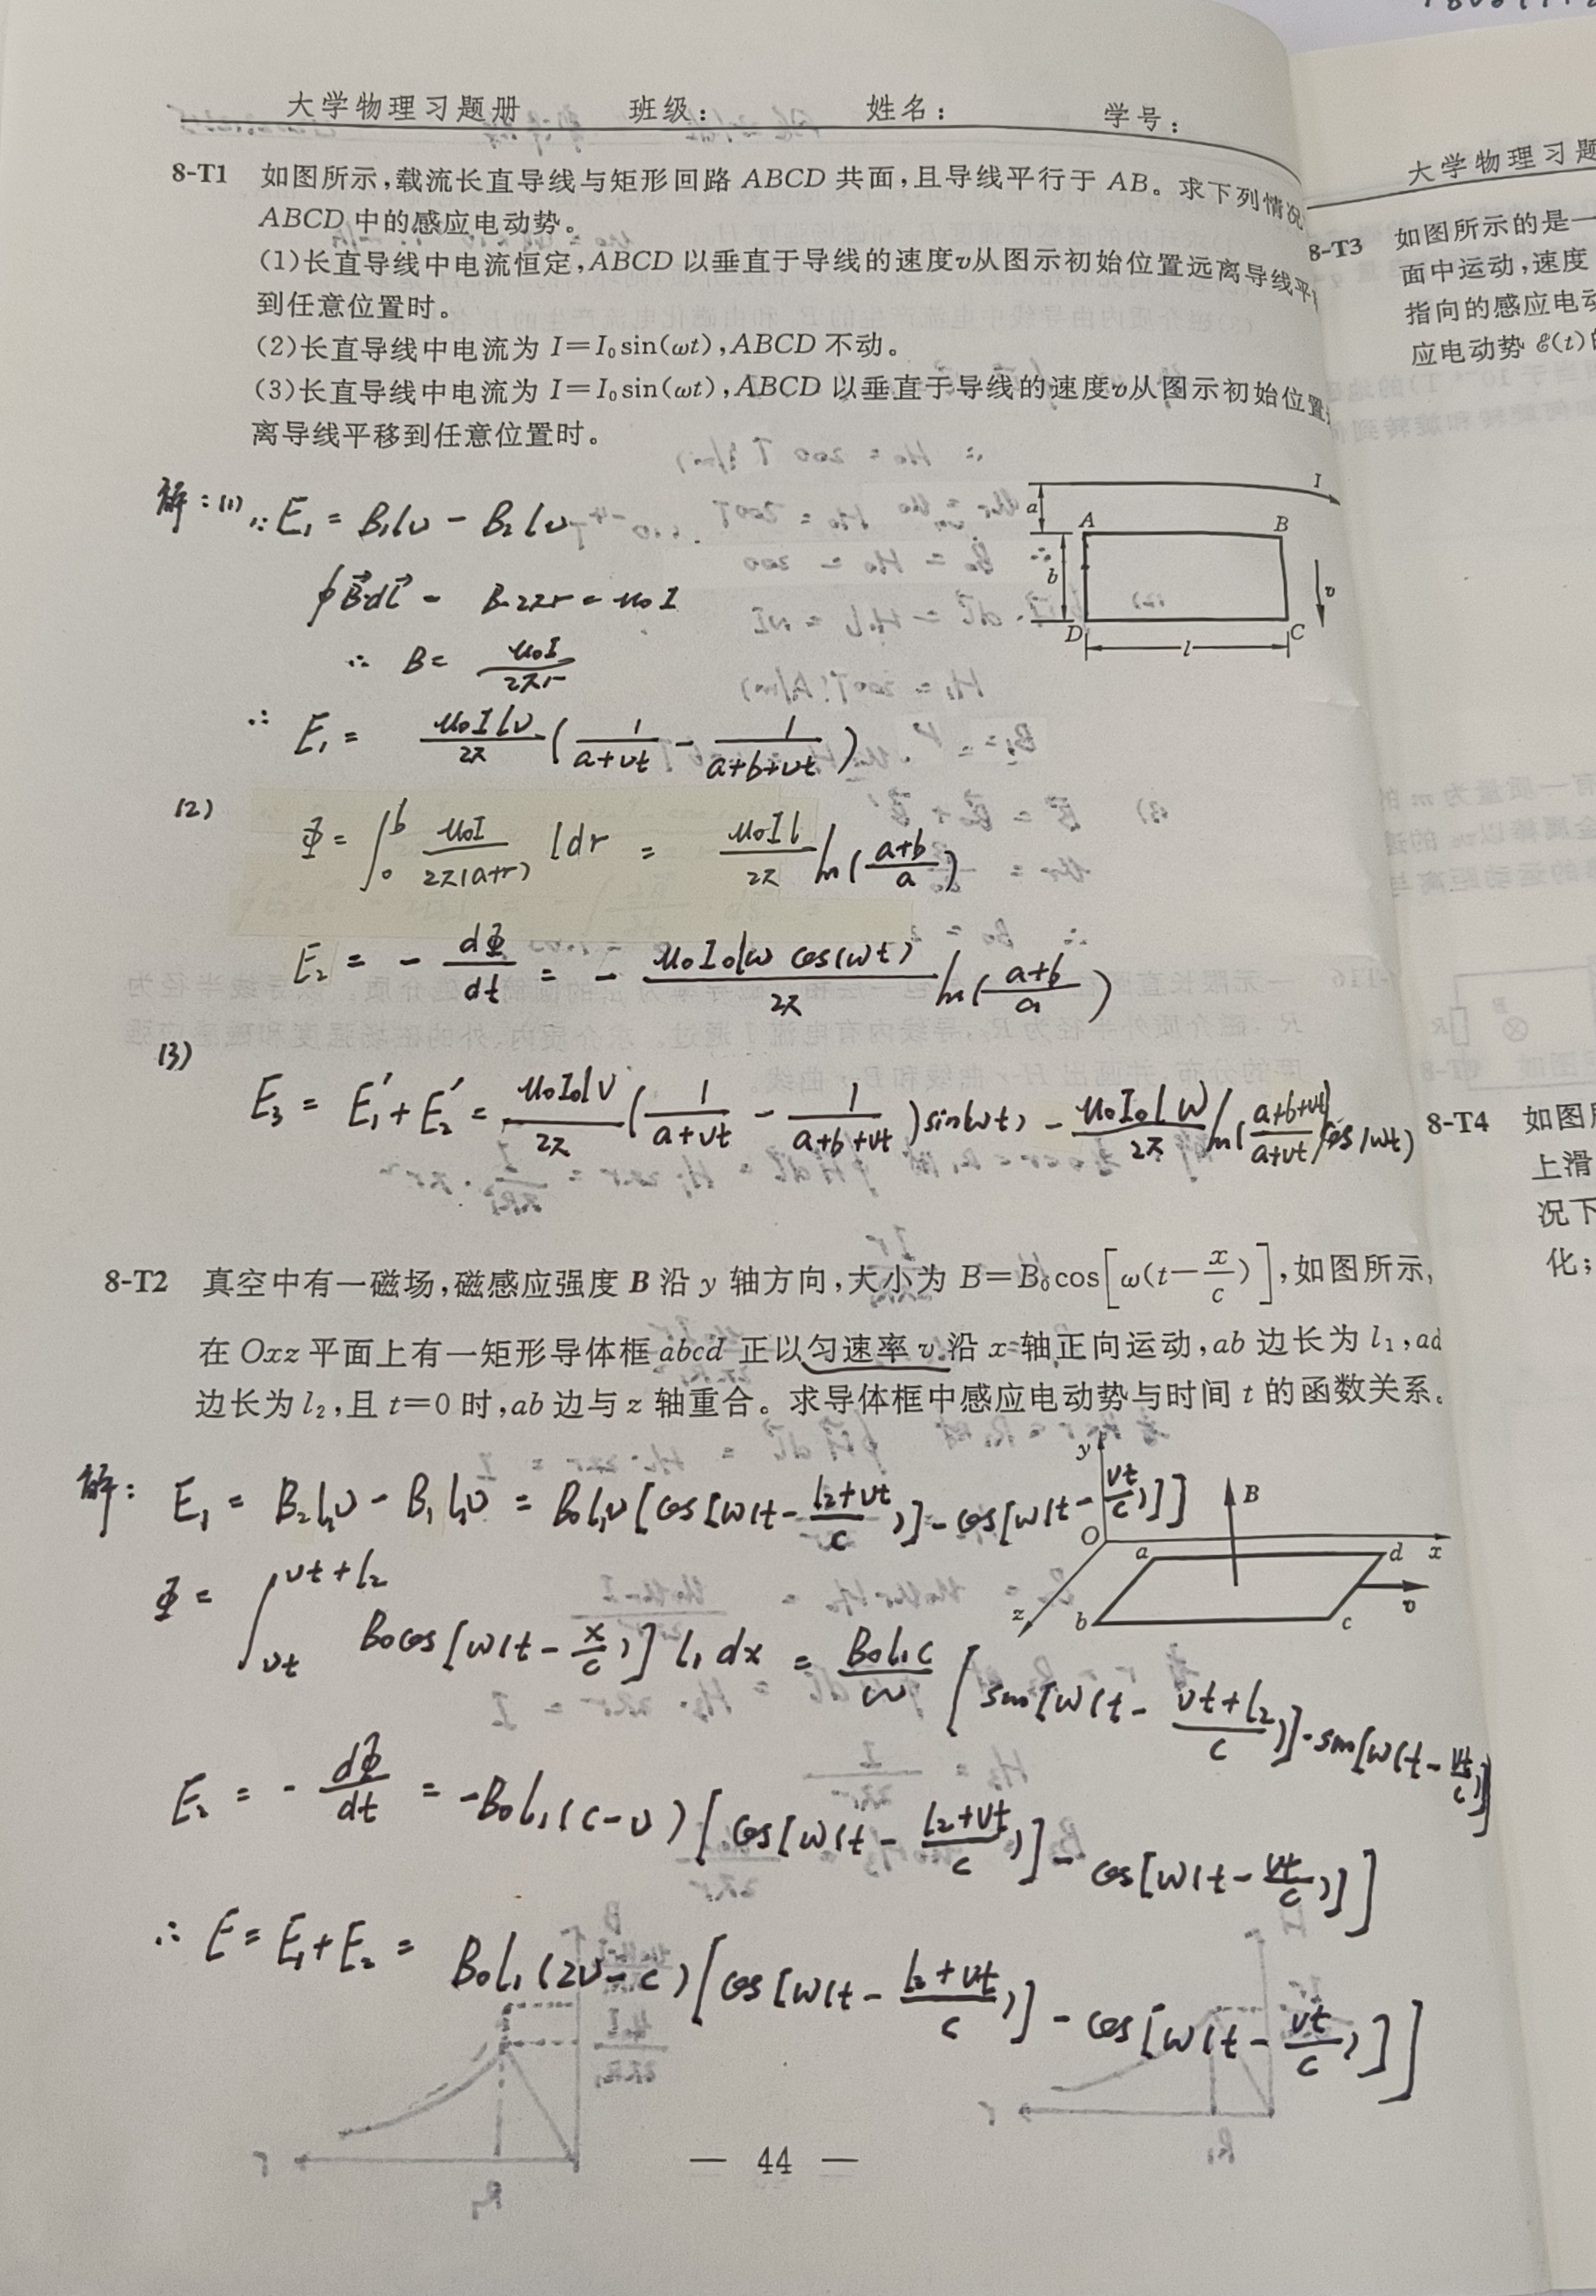 大学物理习题册 班级： 姓名： 学号：
8-T1 如图所示，载流长直导线与矩形回路 ABCD 共面，且导线平行于 AB。求下列情况
ABCD 中的感应电动势。
(1)长直导线中电流恒定，ABCD 以垂直于导线的速度v从图示初始位置远离导线平
到任意位置时。
(2)长直导线中电流为 I=I₀sin(ωt)，ABCD 不动。
(3)长直导线中电流为 I=I₀sin(ωt)，ABCD 以垂直于导线的速度v从图示初始位置
离导线平移到任意位置时。
解：(1) ∵ E₁ = B₁lv - B₂lv
∮B⃗·dl⃗ = B·2πr = μ₀I
∴ B = μ₀I/2πr
∴ E₁ = μ₀Ilv/2π (1/(a+vt) - 1/(a+b+vt))
I
a
A B
b
v
D C
l
(2) Φ = ∫₀ᵇ μ₀I/2π(a+r) ldr = μ₀Il/2π ln((a+b)/a)
E₂ = - dΦ/dt = - μ₀I₀lω cos(ωt)/2π ln((a+b)/a)
(3)
E₃ = E₁′ + E₂′ = μ₀I₀lv/2π (1/(a+vt) - 1/(a+b+vt)) sin(ωt) - μ₀I₀lω/2π ln((a+b+vt)/(a+vt)) cos(ωt)
8-T2 真空中有一磁场，磁感应强度 B 沿 y 轴方向，大小为 B=B₀cos[ω(t-x/c)]，如图所示，
在 Oxz 平面上有一矩形导体框 abcd 正以匀速率 v 沿 x 轴正向运动，ab 边长为 l₁，ad
边长为 l₂，且 t=0 时，ab 边与 z 轴重合。求导体框中感应电动势与时间 t 的函数关系。
解： E₁ = B₂l₁v - B₁l₁v = B₀l₁v[cos[ω(t-(l₂+vt)/c)] - cos[ω(t-vt/c)]]
y
B
O
a d x
z b c v
Φ = ∫_{vt}^{vt+l₂} B₀cos[ω(t-x/c)] l₁dx = -B₀l₁c/ω [sin[ω(t-(vt+l₂)/c)] - sin[ω(t-vt/c)]]
E₂ = - dΦ/dt = -B₀l₁(c-v)[cos[ω(t-(l₂+vt)/c)] - cos[ω(t-vt/c)]]
∴ E = E₁+E₂ = B₀l₁(2v-c)[cos[ω(t-(l₂+vt)/c)] - cos[ω(t-vt/c)]]
— 44 —
大学物理习题
8-T3 如图所示的是一
面中运动，速度
指向的感应电动
应电动势 ℰ(t)的
8-T4 如图所
上滑
况下
化；